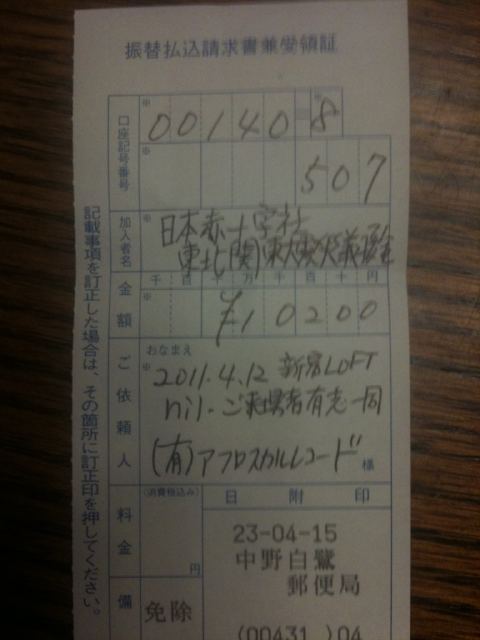 振替払込請求書兼受領証
口座記号番号
※ 00140 ※ 8
※ 507
加入者名
※ 日本赤十字社
東北関東大震災義援金
金額
千 百 十 万 千 百 十 円
※ ¥10200
ご依頼人
おなまえ
※ 2011.4.12 新宿LOFT
nil. ご来場者有志一同
(有)アフロスカルレコード 様
料金
(消費税込み)
円
日 附 印
23-04-15
中野白鷺
郵便局
(00431 )04
備
免除
記載事項を訂正した場合は、その箇所に訂正印を押してください。